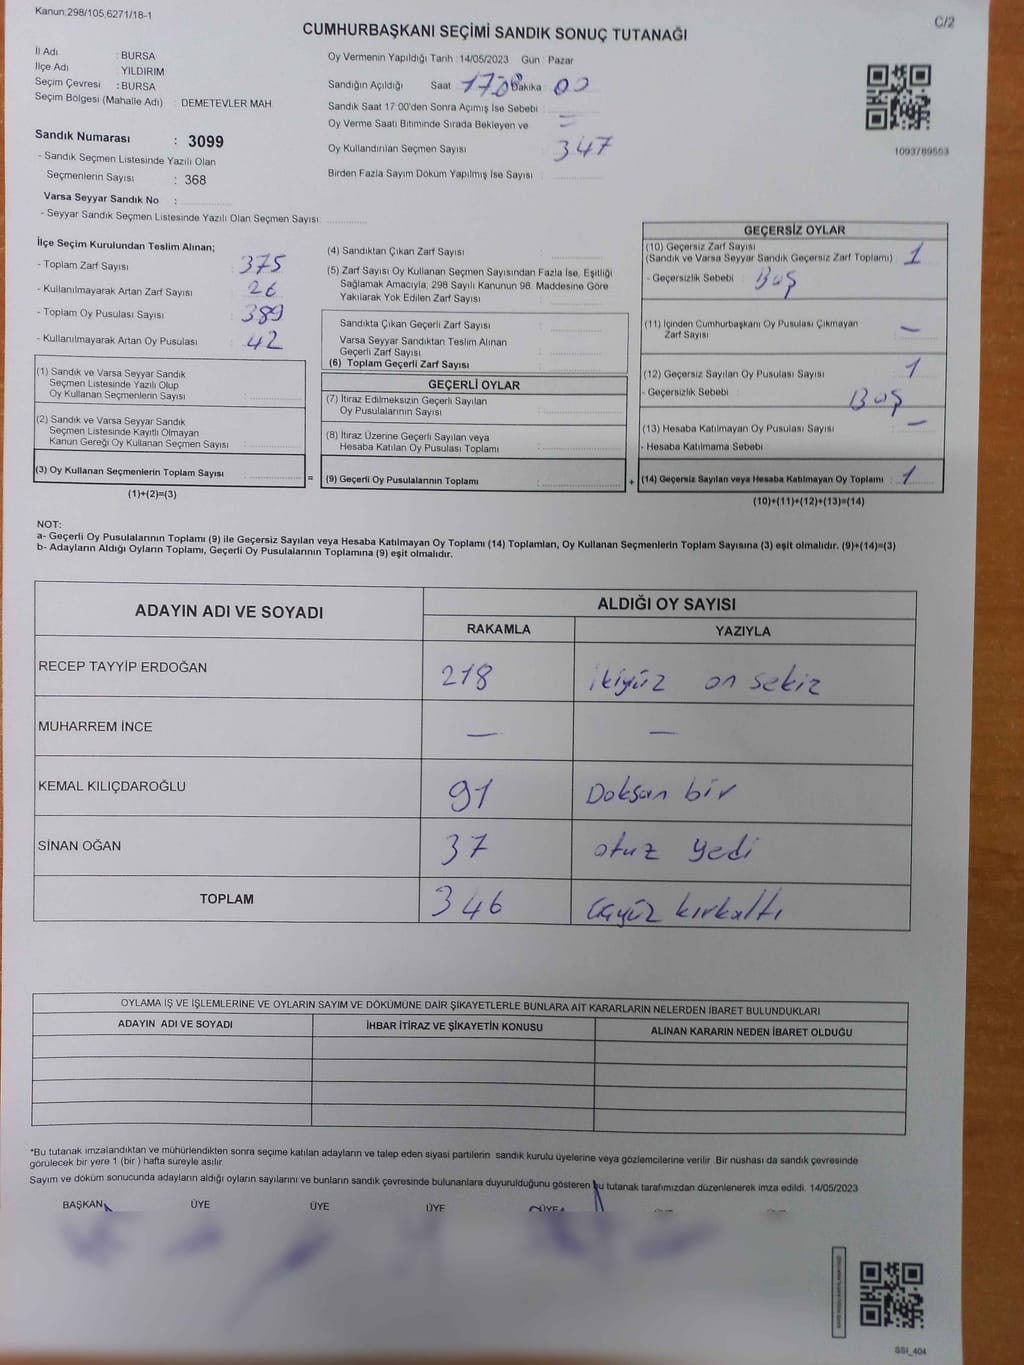 Kanun,298/105,6271/18-1
C/2
CUMHURBAŞKANI SEÇİMİ SANDIK SONUÇ TUTANAĞI
İl Adı : BURSA
İlçe Adı : YILDIRIM
Seçim Çevresi : BURSA
Seçim Bölgesi (Mahalle Adı) : DEMETEVLER MAH.
Sandık Numarası : 3099
- Sandık Seçmen Listesinde Yazılı Olan
Seçmenlerin Sayısı : 368
Varsa Seyyar Sandık No :
- Seyyar Sandık Seçmen Listesinde Yazılı Olan Seçmen Sayısı:
Oy Vermenin Yapıldığı Tarih : 14/05/2023 Gün : Pazar
Sandığın Açıldığı Saat Dakika 00
Sandık Saat 17:00'den Sonra Açılmış İse Sebebi :
Oy Verme Saati Bitiminde Sırada Bekleyen ve
Oy Kullandırılan Seçmen Sayısı : 347
Birden Fazla Sayım Döküm Yapılmış İse Sayısı :
1093789553
İlçe Seçim Kurulundan Teslim Alınan;
- Toplam Zarf Sayısı : 375
- Kullanılmayarak Artan Zarf Sayısı : 26
- Toplam Oy Pusulası Sayısı : 389
- Kullanılmayarak Artan Oy Pusulası : 42
(1) Sandık ve Varsa Seyyar Sandık
Seçmen Listesinde Yazılı Olup
Oy Kullanan Seçmenlerin Sayısı :
(2) Sandık ve Varsa Seyyar Sandık
Seçmen Listesinde Kayıtlı Olmayan
Kanun Gereği Oy Kullanan Seçmen Sayısı :
(3) Oy Kullanan Seçmenlerin Toplam Sayısı :
(1)+(2)=(3)
(4) Sandıktan Çıkan Zarf Sayısı :
(5) Zarf Sayısı Oy Kullanan Seçmen Sayısından Fazla İse, Eşitliği
Sağlamak Amacıyla, 298 Sayılı Kanunun 98. Maddesine Göre
Yakılarak Yok Edilen Zarf Sayısı :
Sandıkta Çıkan Geçerli Zarf Sayısı :
Varsa Seyyar Sandıktan Teslim Alınan
Geçerli Zarf Sayısı :
(6) Toplam Geçerli Zarf Sayısı :
GEÇERLİ OYLAR
(7) İtiraz Edilmeksizin Geçerli Sayılan
Oy Pusulalarının Sayısı :
(8) İtiraz Üzerine Geçerli Sayılan veya
Hesaba Katılan Oy Pusulası Toplamı :
= (9) Geçerli Oy Pusulalarının Toplamı :
GEÇERSİZ OYLAR
(10) Geçersiz Zarf Sayısı
(Sandık ve Varsa Seyyar Sandık Geçersiz Zarf Toplamı) : 1
- Geçersizlik Sebebi : Boş
(11) İçinden Cumhurbaşkanı Oy Pusulası Çıkmayan
Zarf Sayısı : —
(12) Geçersiz Sayılan Oy Pusulası Sayısı : 1
- Geçersizlik Sebebi : Boş
(13) Hesaba Katılmayan Oy Pusulası Sayısı : —
- Hesaba Katılmama Sebebi :
+ (14) Geçersiz Sayılan veya Hesaba Katılmayan Oy Toplamı : 1
(10)+(11)+(12)+(13)=(14)
NOT:
a- Geçerli Oy Pusulalarının Toplamı (9) ile Geçersiz Sayılan veya Hesaba Katılmayan Oy Toplamı (14) Toplamları, Oy Kullanan Seçmenlerin Toplam Sayısına (3) eşit olmalıdır. (9)+(14)=(3)
b- Adayların Aldığı Oyların Toplamı, Geçerli Oy Pusulalarının Toplamına (9) eşit olmalıdır.
ADAYIN ADI VE SOYADI ALDIĞI OY SAYISI
RAKAMLA YAZIYLA
RECEP TAYYİP ERDOĞAN 218 ikiyüz on sekiz
MUHARREM İNCE — —
KEMAL KILIÇDAROĞLU 91 Doksan bir
SİNAN OĞAN 37 otuz yedi
TOPLAM 346 üçyüz kırkaltı
OYLAMA İŞ VE İŞLEMLERİNE VE OYLARIN SAYIM VE DÖKÜMÜNE DAİR ŞİKAYETLERLE BUNLARA AİT KARARLARIN NELERDEN İBARET BULUNDUKLARI
ADAYIN ADI VE SOYADI İHBAR İTİRAZ VE ŞİKAYETİN KONUSU ALINAN KARARIN NEDEN İBARET OLDUĞU
*Bu tutanak imzalandıktan ve mühürlendikten sonra seçime katılan adayların ve talep eden siyasi partilerin sandık kurulu üyelerine veya gözlemcilerine verilir. Bir nüshası da sandık çevresinde
görülecek bir yere 1 (bir) hafta süreyle asılır.
Sayım ve döküm sonucunda adayların aldığı oyların sayılarını ve bunların sandık çevresinde bulunanlara duyurulduğunu gösteren bu tutanak tarafımızdan düzenlenerek imza edildi. 14/05/2023
BAŞKAN ÜYE ÜYE ÜYE ÜYE
SSI_404